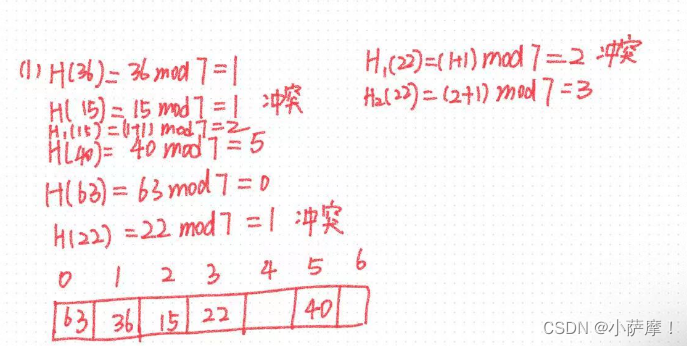 (1) H(36)= 36 mod 7=1
H(15)=15 mod 7=1 冲突
H₁(15)=(1+1) mod 7=2
H(40)= 40 mod 7=5
H(63)=63 mod 7=0
H(22)=22 mod 7=1 冲突
H₁(22)=(1+1) mod 7=2 冲突
H₂(22)=(2+1) mod 7=3
0 1 2 3 4 5 6
63 36 15 22 40
CSDN @小萨摩！